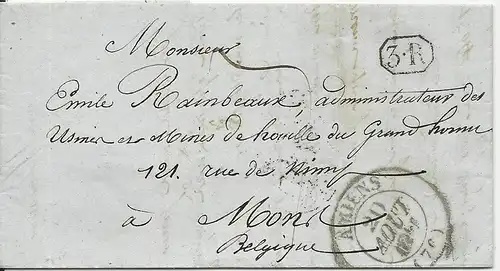 Monsieur
3.R
Emile Rainbeaux, administrateur des
Usines et Mines de houille du Grand hornu
121. rue de Nimy
à Mons
Belgique
AMIENS
20
AOUT
(76)